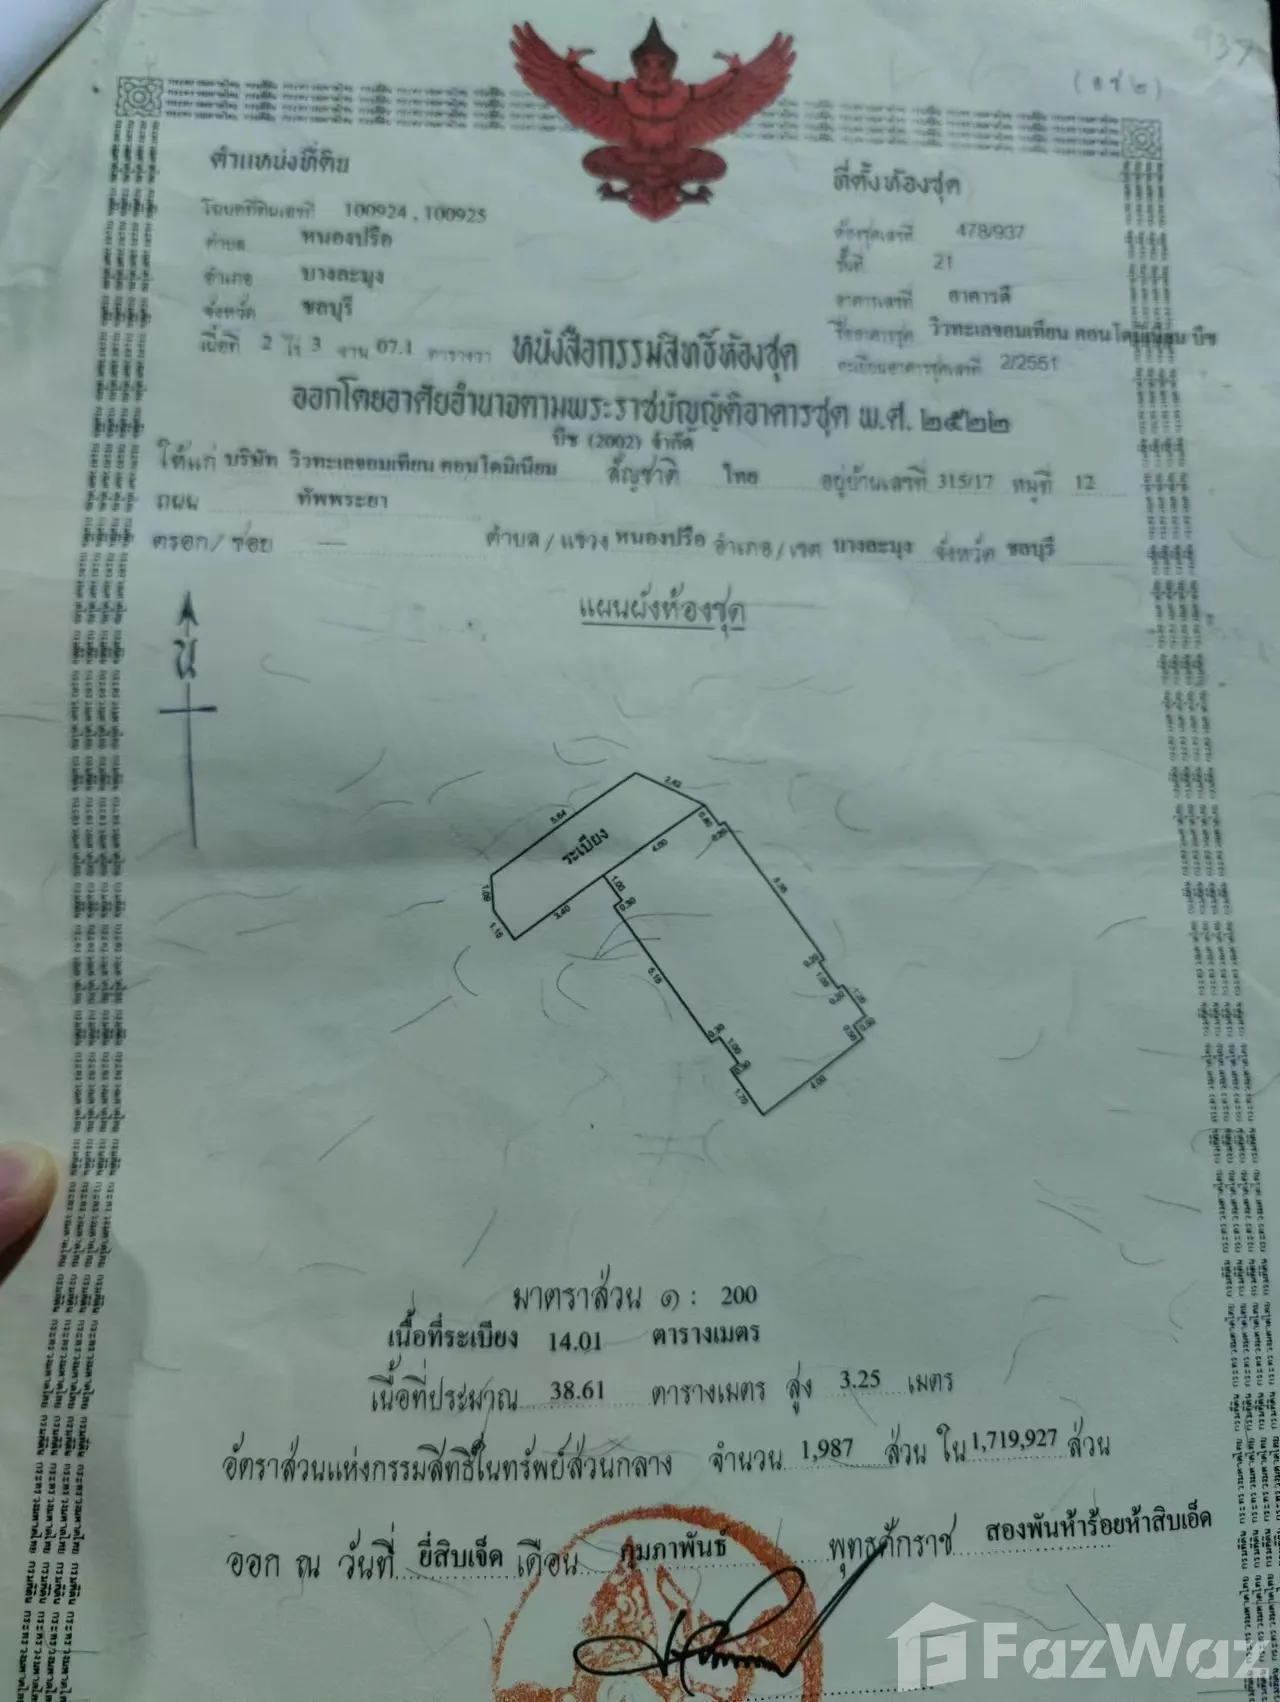 937
(อช ๒)
ตำแหน่งที่ดิน
โฉนดที่ดินเลขที่ 100924 , 100925
ตำบล หนองปรือ
อำเภอ บางละมุง
จังหวัด ชลบุรี
เนื้อที่ 2 ไร่ 3 งาน 07.1 ตารางวา
ที่ตั้งห้องชุด
ห้องชุดเลขที่ 478/937
ชั้นที่ 21
อาคารเลขที่ อาคารดี
ชื่ออาคารชุด วิวทะเลจอมเทียน คอนโดมิเนียม บีช
ทะเบียนอาคารชุดเลขที่ 2/2551
หนังสือกรรมสิทธิ์ห้องชุด
ออกโดยอาศัยอำนาจตามพระราชบัญญัติอาคารชุด พ.ศ. ๒๕๒๒
บีช (2002) จำกัด
ให้แก่ บริษัท วิวทะเลจอมเทียน คอนโดมิเนียม สัญชาติ ไทย อยู่บ้านเลขที่ 315/17 หมู่ที่ 12
ถนน ทัพพระยา
ตรอก/ซอย — ตำบล/แขวง หนองปรือ อำเภอ/เขต บางละมุง จังหวัด ชลบุรี
แผนผังห้องชุด
น
2.43
5.64
ระเบียง
4.00
1.00
0.30
1.09
3.40
1.15
5.15
1.00
1.70
4.00
มาตราส่วน ๑ : 200
เนื้อที่ระเบียง 14.01 ตารางเมตร
เนื้อที่ประมาณ 38.61 ตารางเมตร สูง 3.25 เมตร
อัตราส่วนแห่งกรรมสิทธิ์ในทรัพย์ส่วนกลาง จำนวน 1,987 ส่วน ใน 1,719,927 ส่วน
ออก ณ วันที่ ยี่สิบเจ็ด เดือน กุมภาพันธ์ พุทธศักราช สองพันห้าร้อยห้าสิบเอ็ด
FazWaz